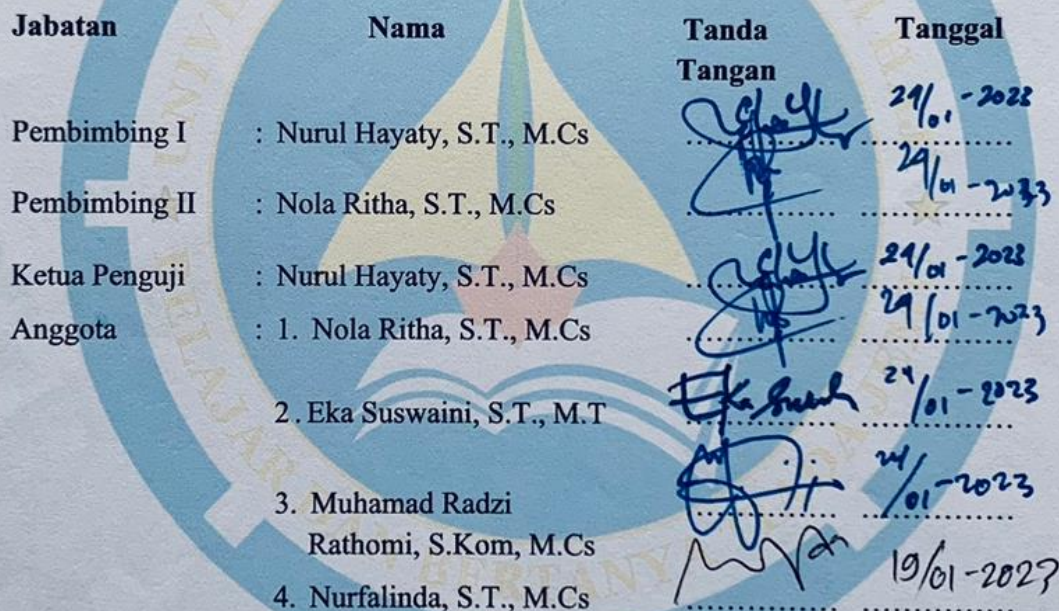 Jabatan Nama Tanda Tangan Tanggal
Pembimbing I : Nurul Hayaty, S.T., M.Cs 24/01-2023
Pembimbing II : Nola Ritha, S.T., M.Cs 24/01-2023
Ketua Penguji : Nurul Hayaty, S.T., M.Cs 24/01-2023
Anggota : 1. Nola Ritha, S.T., M.Cs 24/01-2023
2. Eka Suswaini, S.T., M.T 24/01-2023
3. Muhamad Radzi 24/01-2023
Rathomi, S.Kom, M.Cs
4. Nurfalinda, S.T., M.Cs 19/01-2023